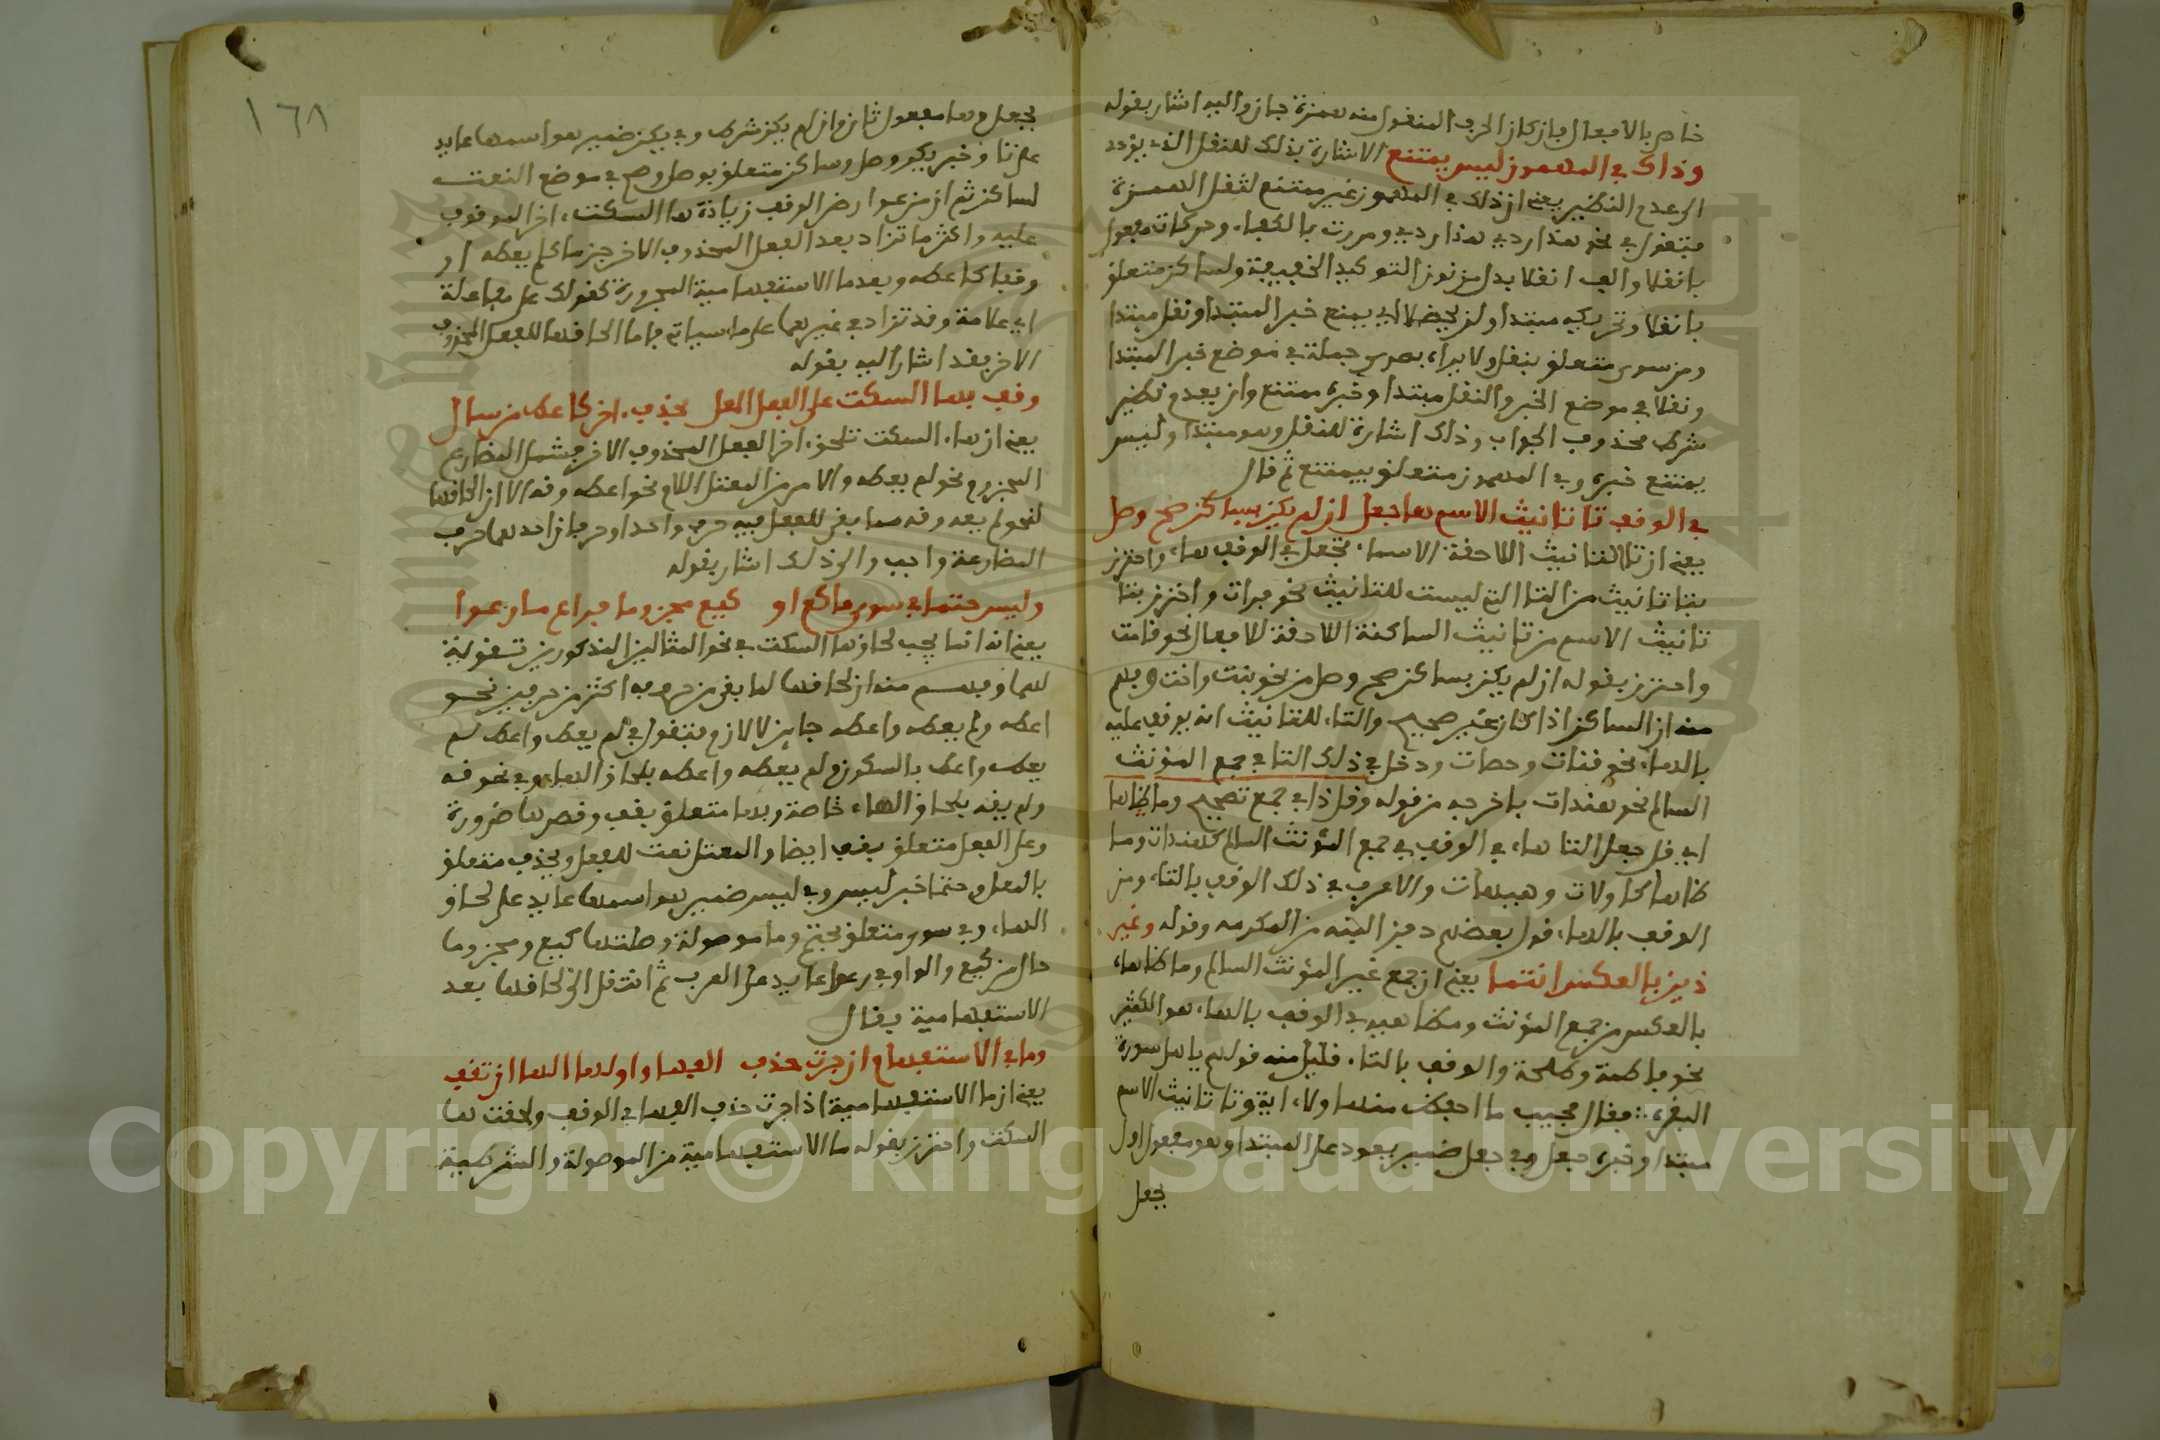 خاص بالافعال فان كان الحرف المنقول منه همزة جاز واليه اشار بقوله
وذاك في المهموز ليس يمتنع الاشارة بذلك للنقل الذي يؤدي
الى عدم النظير يعني ان ذلك في المهموز غير ممتنع لثقل الهمزة
فتقول في نحو هذا ردء هذا ردء ومررت بالكفء وحركات مفعول
بانقلا والف انقلا بدل من نون التوكيد الخفيفة ولساكن متعلق
بانقلا وتحريكه مبتدا ولن يحضلا اي يمنع خبر المبتدا ونقل مبتدا
ومن سوى متعلق بنقل ولا يراه بصري جملة في موضع خبر المبتدا
ونقلا في موضع الخبر والنقل مبتدا وخبره ممتنع وان يعدم نظير
شرط محذوف الجواب وذلك اشارة للنقل وهو مبتدا وليس
يمتنع خبره وفي المهموز متعلق بيمتنع ثم قال
في الوقف تا تانيث الاسم ها جعل ان لم يكن بساكن صح وصل
يعني ان تا التانيث اللاحقة الاسماء تجعل في الوقف هاء واحترز
بتا تانيث من التا التي ليست للتانيث نحو فرات واحترز بتا
تانيث الاسم من تانيث الساكنة اللاحقة للافعال نحو قامت
واحترز بقوله ان لم يكن بساكن صح وصل من نحو بنت واخت وفهم
منه ان الساكن اذا كان غير صحيح والتاء للتانيث انه يوقف عليه
بالهاء نحو فتات وحصات ودخل في ذلك التا في جمع المؤنث
السالم نحو هندات فاخرجه من قوله وقل ذا في جمع تصحيح وما ضاها
اي قل جعل التا هاء في الوقف في جمع المؤنث السالم كالهندات وما
ضاهاها كاولات وهيهات والاعرف في ذلك الوقف بالتاء ومن
الوقف بالهاء قول بعضهم دفن البنه من المكرمه وقوله وغير
ذين بالعكس انتما يعني ان جمع غير المؤنث السالم وما ضاهاه
بالعكس من جمع المؤنث ومضاهيه في الوقف بالهاء هو الكثير
نحو فاطمة وطلحة والوقف بالتاء قليل منه قولهم يا اهل سورة
البقرة فقال مجيب ما احفظ منها ولا اية وتا تانيث الاسم
مبتدا وخبره جعل وفي جعل ضمير يعود على المبتدا وهو مفعول اول
يجعل
١٦٨
بجعل وها مفعول ثان وان لم يكن شرط وفي يكن ضمير هو اسمها عايد
على تا وخبر يكن وصل وساكن متعلق بوصل وصح في موضع النعت
لساكن ثم ان من عوارض الوقف زيادة ها السكت اخر الموقوف
عليه واكثر ما تزاد بعد الفعل المحذوف الاخر جزما كلم يعطه او
وقفا كاعطه وبعد ما الاستفهامية المجرورة كقولك على مه
اي علامة وقد تزاد في غيرهما على ما سياتي فاما الحاقها للفعل المحذوف
الاخر فقد اشار اليه بقوله
وقف بها السكت على الفعل المعل بحذف اخر كاعط من سال
يعني ان هاء السكت تلحق اخر الفعل المحذوف الاخر فشمل المضارع
المجزوم نحو لم يعطه والامر من المعتل اللام نحو اعطه وقه الا ان الحاقها
لنحو لم يعه وقه مما بقي للفعل فيه حرف واحد او حرفان احدهما حرف
المضارعة واجب والى ذلك اشار بقوله
وليس حتما في سوى ما كع او كيع مجزوما فراع ما رعوا
يعني انه انما يجب لحاق ها السكت في نحو المثالين المذكورين تقوية
لهما وفهم منه ان لحاقها لما بقي من حروفه اكثر من حرفين نحو
اعطه ولم يعطه واعطه جايز لا لازم فتقول في لم يعط واعط لم
يعط واعط بالسكون ولم يعطه واعطه بلحاق الهاء وفي نحو قه
ولم يقه بلحاق الهاء خاصة وبها متعلق بقف وقصرها ضرورة
وعلى الفعل متعلق بقف ايضا والمعتل نعت للفعل وبحذف متعلق
بالمعل وحتما خبر ليس وفي ليس ضمير هو اسمها عايد على لحاق
الهاء وفي سوى متعلق بحتم وما موصولة وصلتها كيع ومجزوما
حال من كيع والواو في رعوا عايد على العرب ثم انتقل الى لحاقها بعد
الاستفهامية فقال
وما في الاستفهام ان جرت حذف الفها واولها الها ان تقف
يعني ان ما الاستفهامية اذا جرت حذف الفها في الوقف ولحقت ها
السكت واحترز بقوله ما الاستفهامية من الموصولة والشرطية
Copyright © King Saud University